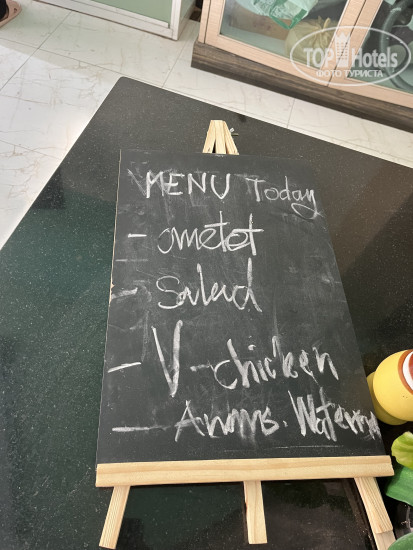 TOPHotels
ФОТО ТУРИСТА
MENU Today
- ometot
- Salad
- V-chicken
- Ananas. Waterm